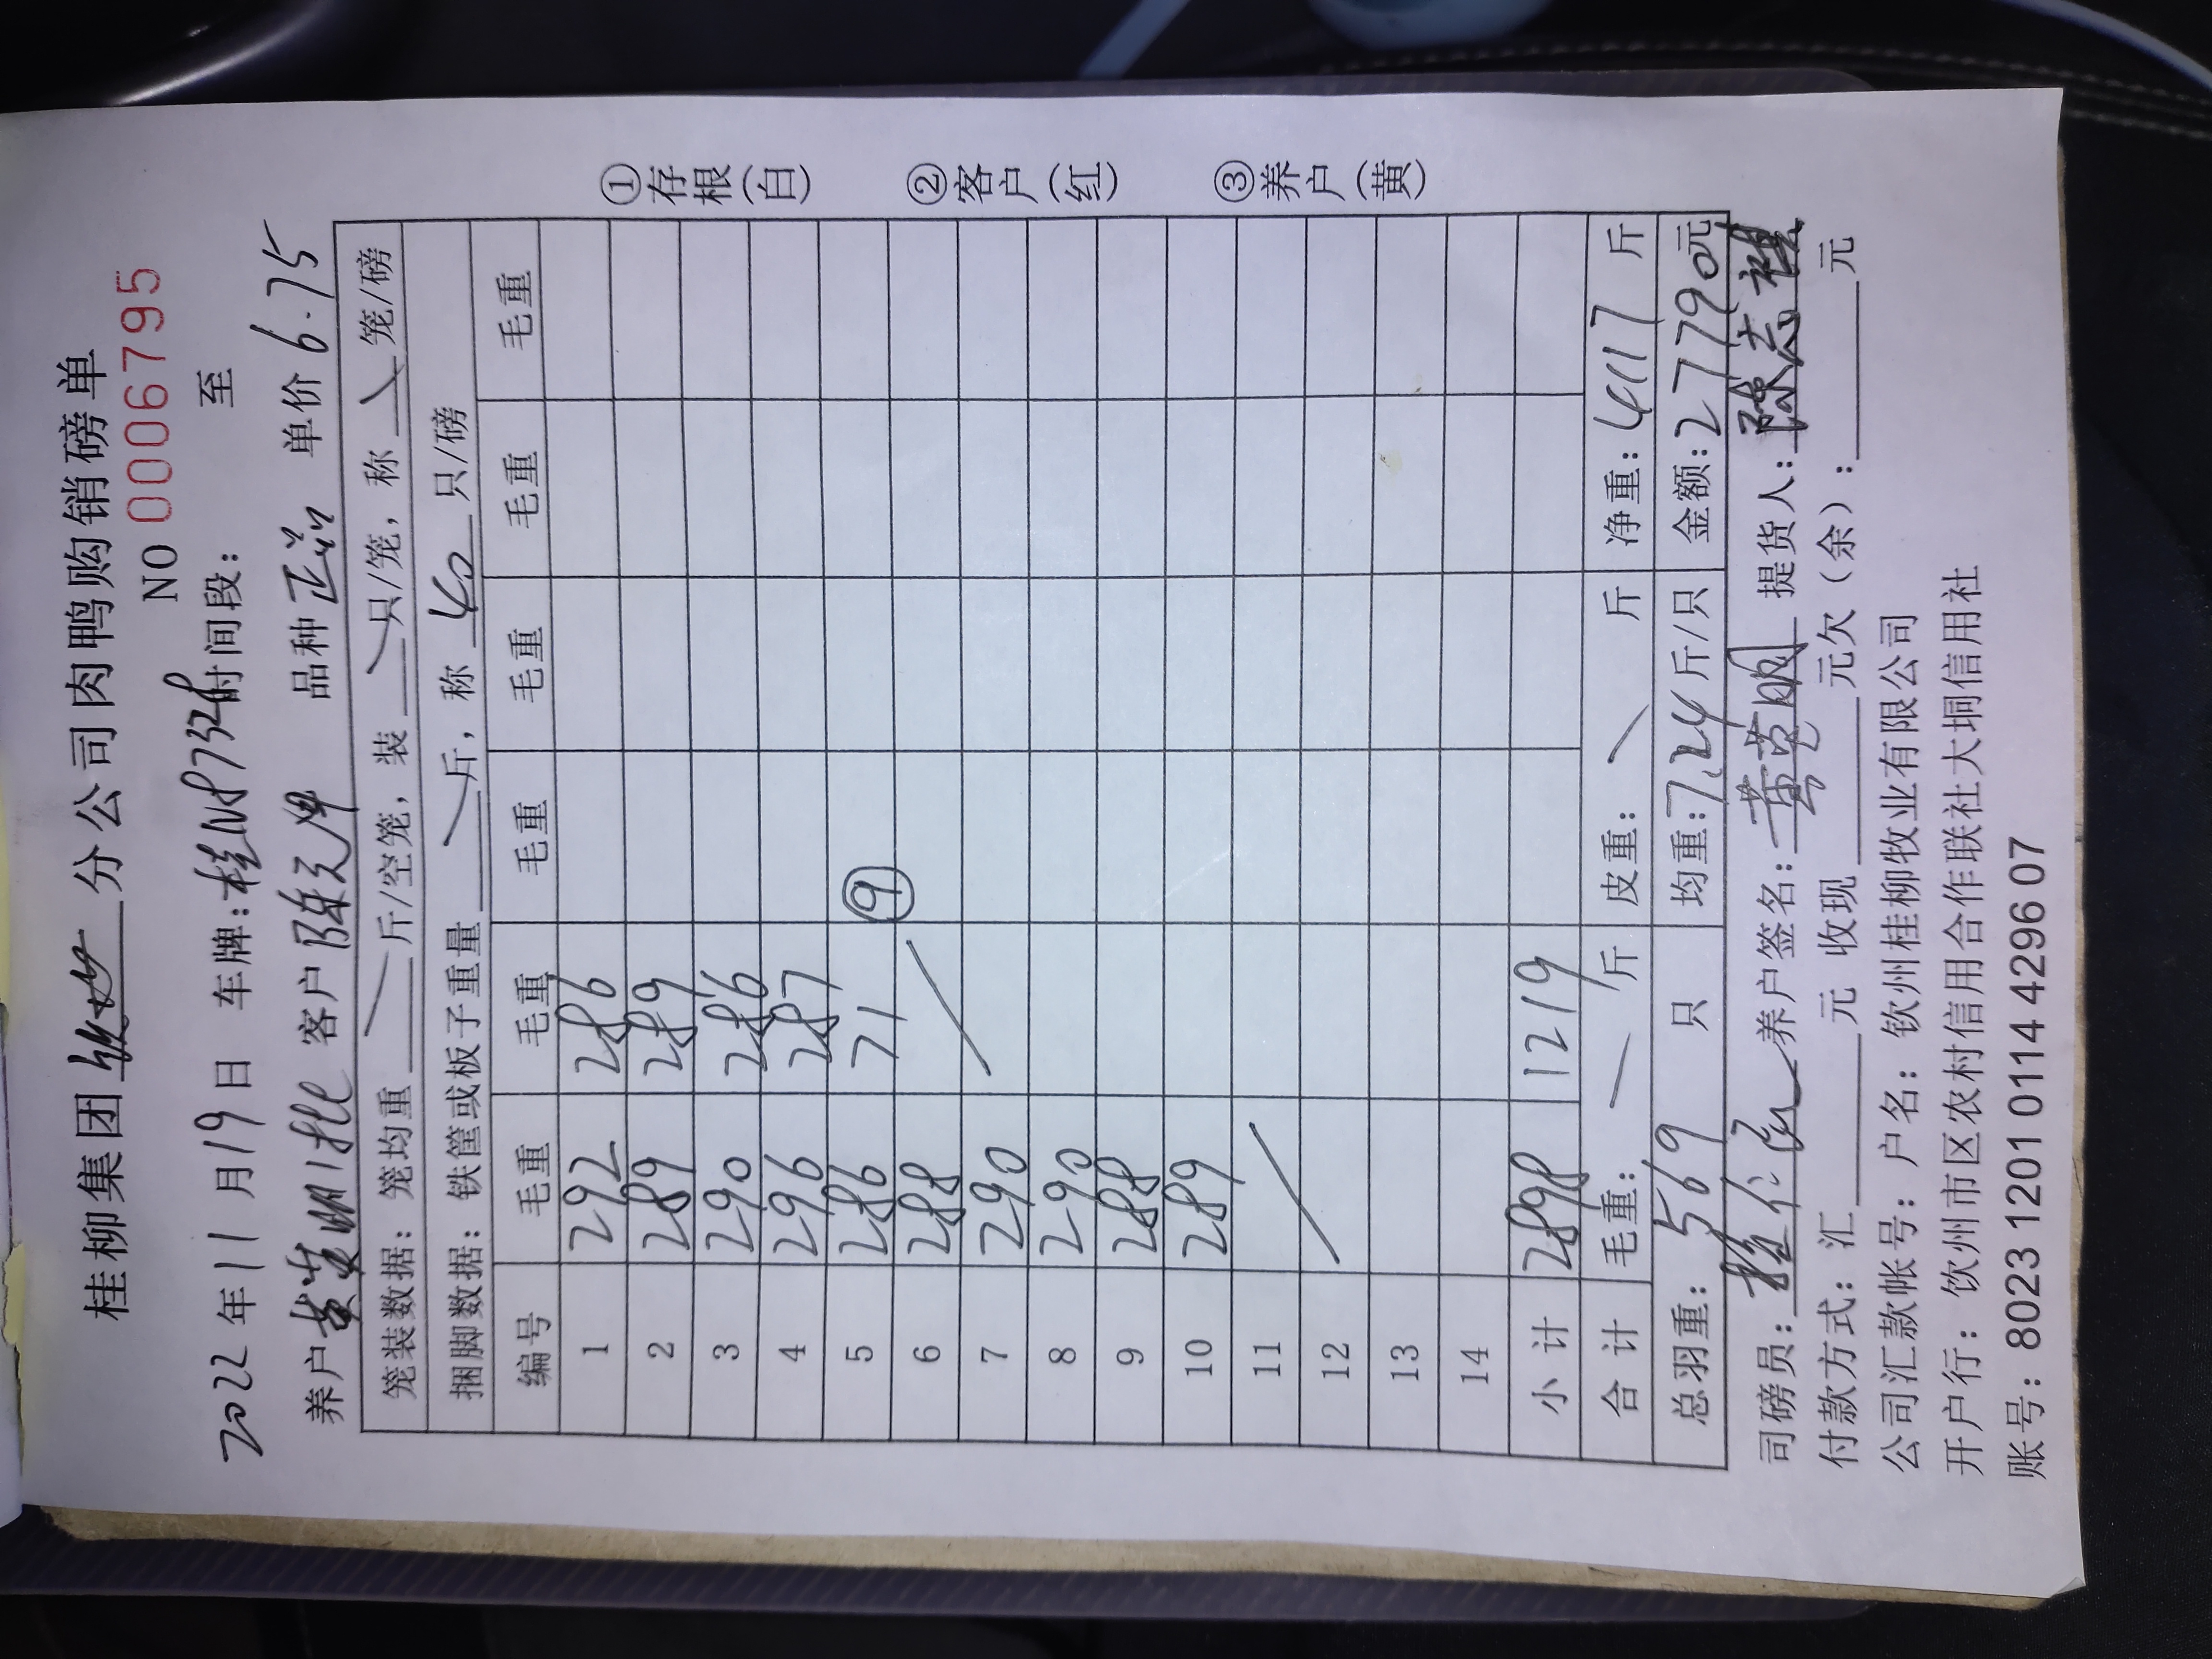 桂柳集团 分公司肉鸭购销磅单
NO 0006795
2022年11月19日 车牌: 时间段: 至
养户 客户 品种 正品 单价 6.75
笼装数据: 笼均重 斤/空笼, 装 只/笼, 称 笼/磅
捆脚数据: 铁筐或板子重量 斤, 称 40 只/磅
编号 毛重 毛重 毛重 毛重 毛重 毛重
1 292 286
2 289 289
3 290 286
4 296 287
5 286 71 ⑨
6 288
7 290
8 290
9 288
10 289
11
12
13
14
小计 2898 1219
合计 毛重: 斤 皮重: 斤 净重: 4117 斤
总羽重: 569 只 均重: 7.24 斤/只 金额: 27790元
司磅员: 养户签名: 提货人: 陈志祖
付款方式: 汇 元 收现 元欠（余）: 元
公司汇款帐号: 户名: 钦州桂柳牧业有限公司
开户行: 饮州市区农村信用合作联社大垌信用社
账号: 8023 1201 0114 4296 07
①存根(白) ②客户(红) ③养户(黄)